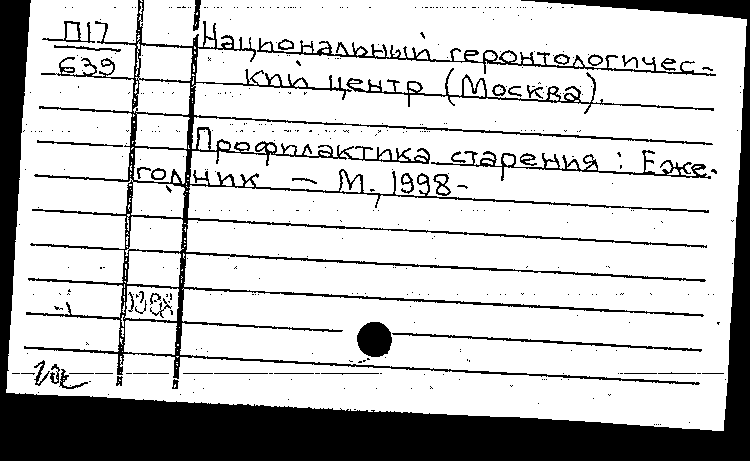 П17
639
Национальный геронтологичес-
кий центр (Москва).
Профилактика старения : Еже-
годник — М., 1998-
1998